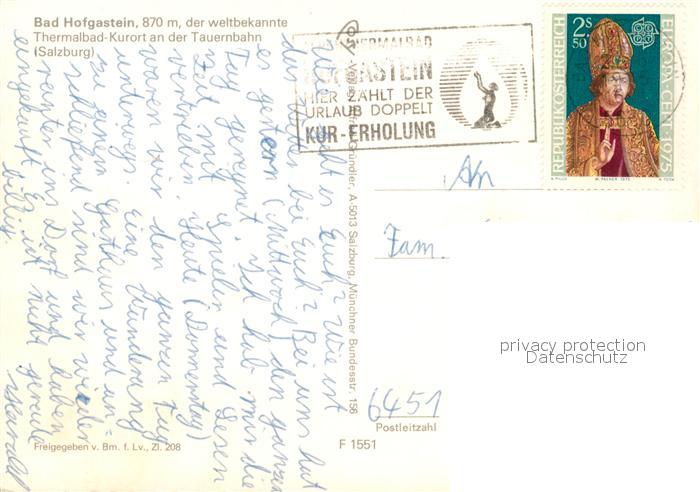 Bad Hofgastein, 870 m, der weltbekannte
Thermalbad-Kurort an der Tauernbahn
(Salzburg)
THERMALBAD
HIER ZÄHLT DER
URLAUB DOPPELT
KUR-ERHOLUNG
2S
50
REPUBLIK ÖSTERREICH
EUROPA-CEPT 1975
geht es Euch? Wie ist
das bei Euch? Bei uns hat
es gestern (Mittwoch) den ganzen
Tag geregnet. Ich hab mir die
Zeit mit Spielen und Lesen
vertrieben. Heute (Donnerstag)
waren wir den ganzen Tag
unterwegs. Eine Wanderung
zu einem Gasthaus und an-
schließend sind wir wieder
runter ins Dorf und haben
eingekauft. Es ist nicht gerade
billig.
Harald
Gründler, A-5013 Salzburg, Münchner Bundesstr. 156
An
Fam.
privacy protection
Datenschutz
6451
Postleitzahl
F 1551
Freigegeben v. Bm. f. Lv., Zl. 208